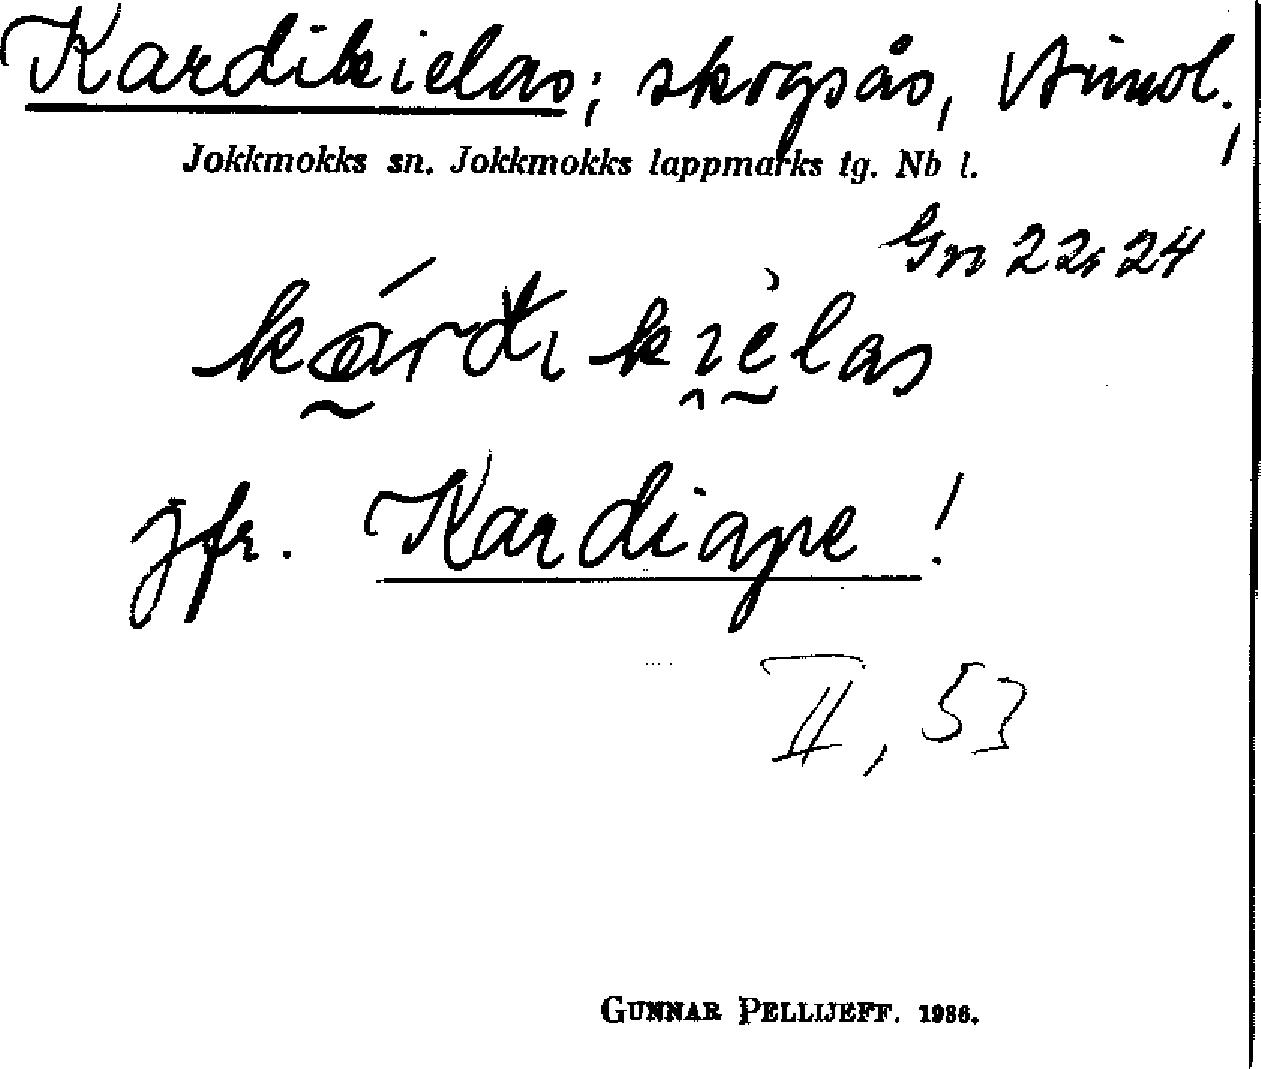 Kardikielas; skogsås,
Jokkmokks sn. Jokkmokks lappmarks tg. Nb l.
Gn 22, 24
kárđikìelas
Jfr. Kardiape!
II, 53
GUNNAR PELLIJEFF. 1986.